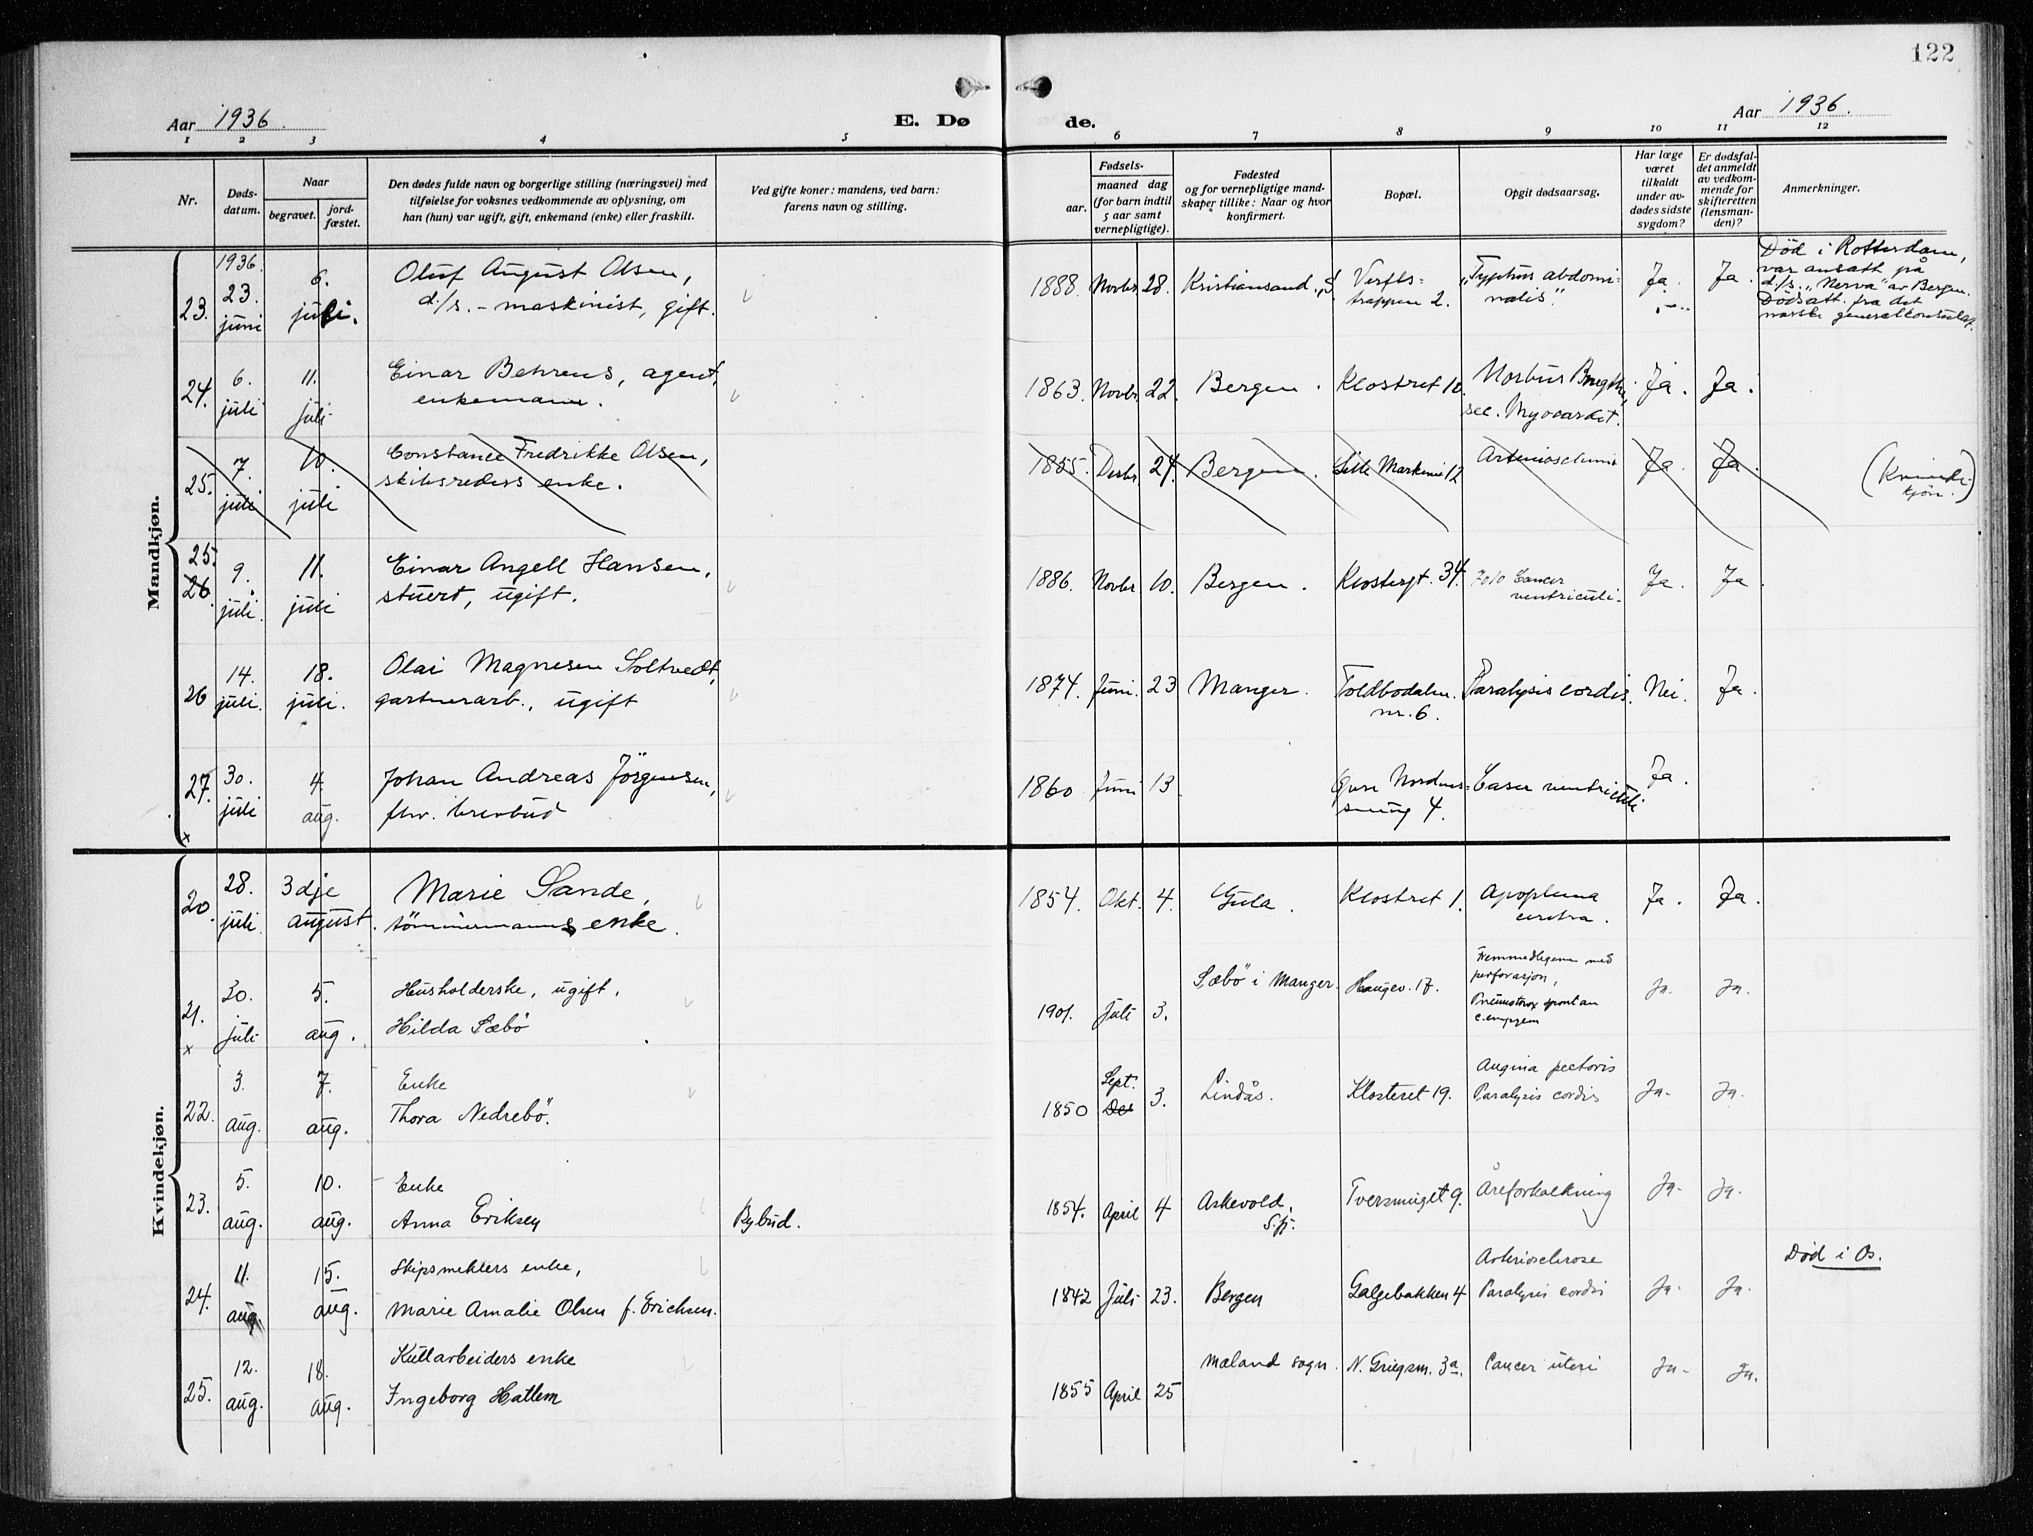 122
Aar 1936.
E. Dø de.
Aar 1936.
1 2 3 4 5 6 7 8 9 10 11 12
Nr.
Døds-
datum.
Naar
begravet.
jord-
fæstet.
Den dødes fulde navn og borgerlige stilling (næringsvei) med
tilføielse for voksnes vedkommende av oplysning, om
han (hun) var ugift, gift, enkemand (enke) eller fraskilt.
Ved gifte koner: mandens, ved barn:
farens navn og stilling.
Fødsels-
aar.
maaned dag
(for barn indtil
5 aar samt
vernepligtige).
Fødested
og for vernepligtige mand-
skaper tillike: Naar og hvor
konfirmert.
Bopæl.
Opgit dødsaarsag.
Har læge
været
tilkaldt
under av-
dødes sidste
sygdom?
Er dødsfal-
det anmeldt
av vedkom-
mende for
skifteretten
(lensman-
den)?
Anmerkninger.
Mandkjøn.
23.
1936.
23.
juni
6.
juli.
Oluf August Olsen,
d/s. - maskinist, gift.
1888. Novbr 28. Kristiansand S.
Verfts-
trappen 2.
"Typhus abdomi-
nalis."
Ja.
Ja.
Død i Rotterdam,
var ansatt på
d/s. "Nerva" av Bergen.
Dødsatt. fra det
norske generalkonsulat.
24.
6.
juli
11.
juli
Einar Behrens, agent,
enkemann.
1863. Novbr 22. Bergen. Klostret 10.
Morbus
sec. Myocardit.
Ja. Ja.
25.
7.
juli
10.
juli
Constance Fredrikke Olsen,
skibsreders enke.
1855. Decbr 24. Bergen. Lille Markevei 12
Ja. Ja.
(Kvinde-
kjøn.)
25.
26
9.
juli.
11.
juli
Einar Angell Hansen,
stuert, ugift.
1886. Novbr 10. Bergen. Klostergt. 34.
Cancer
ventriculi.
Ja. Ja.
26
14.
juli.
18.
juli.
Olai Magnesen Soltvedt,
gartnerarb., ugift
1874. Juni. 23 Manger.
Toldbodalm.
nr. 6.
Paralysis cordis.
Nei. Ja.
27.
x
30.
juli
4.
aug.
Johan Andreas Jörgensen,
fhv. brevbud
1860 Juni 13
Øvre Nordnes-
smug 4.
Cancer ventriculi
Ja.
Kvindekjøn.
20.
28.
juli
3dje
august.
Marie Sande,
tömmermanns enke.
1854. Okt. 4. Gula. Klostret 1.
Apoplexia
cerebra.
Ja. Ja.
21.
x
30.
juli
5.
aug.
Husholderske, ugift.
Hilda Sæbö
1901. Juli 3.
Sæbö i Manger.
Haugev. 17.
Fremmedlegeme med
perforasjon,
Pneumotorax spontan
c. empyem
Ja. Ja.
22.
3.
aug.
7.
aug.
Enke
Thora Nedrebö.
1850
Sept.
Des
3.
Lindås.
Klosteret 19.
Angina pectoris
Paralysis cordis
Ja. Ja.
23.
5.
aug.
10.
aug.
Enke
Anna Eriksen
Bybud.
1854. April 4
Askevold,
S.fj.
Tversmuget 9.
Åreforkalkning
Ja. Ja.
24.
11.
aug.
15.
aug.
Skipsmeklers enke,
Marie Amalie Olsen f. Erichsen.
1842 Juli 23. Bergen Galgebakken 4
Arteriosclerose
Paralysis cordis
Ja. Ja.
Død i Os.
25.
12.
aug.
18.
aug.
Kullarbeiders enke
Ingeborg Hatlem
1855 April 25
Maland sogn.
N. Griegsm. 3a.
Cancer uteri
Ja. Ja.